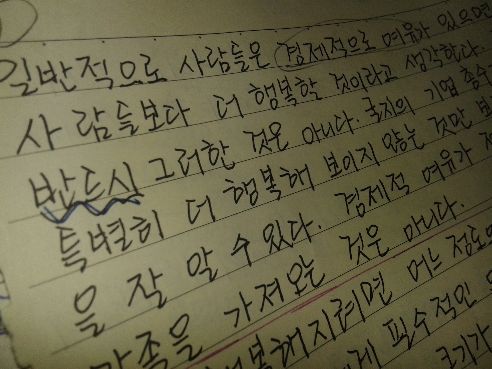 일반적으로 사람들은 경제적으로 여유가 있으면
사람들보다 더 행복할 것이라고 생각한다.
반드시 그러한 것은 아니다. 국지의 기업 총수
특별히 더 행복해 보이지 않는 것만 보
을 잘 알 수 있다. 경제적 여유가
만족을 가져오는 것은 아니다.
행복해지려면 어느 정도의
필수적인
크기가